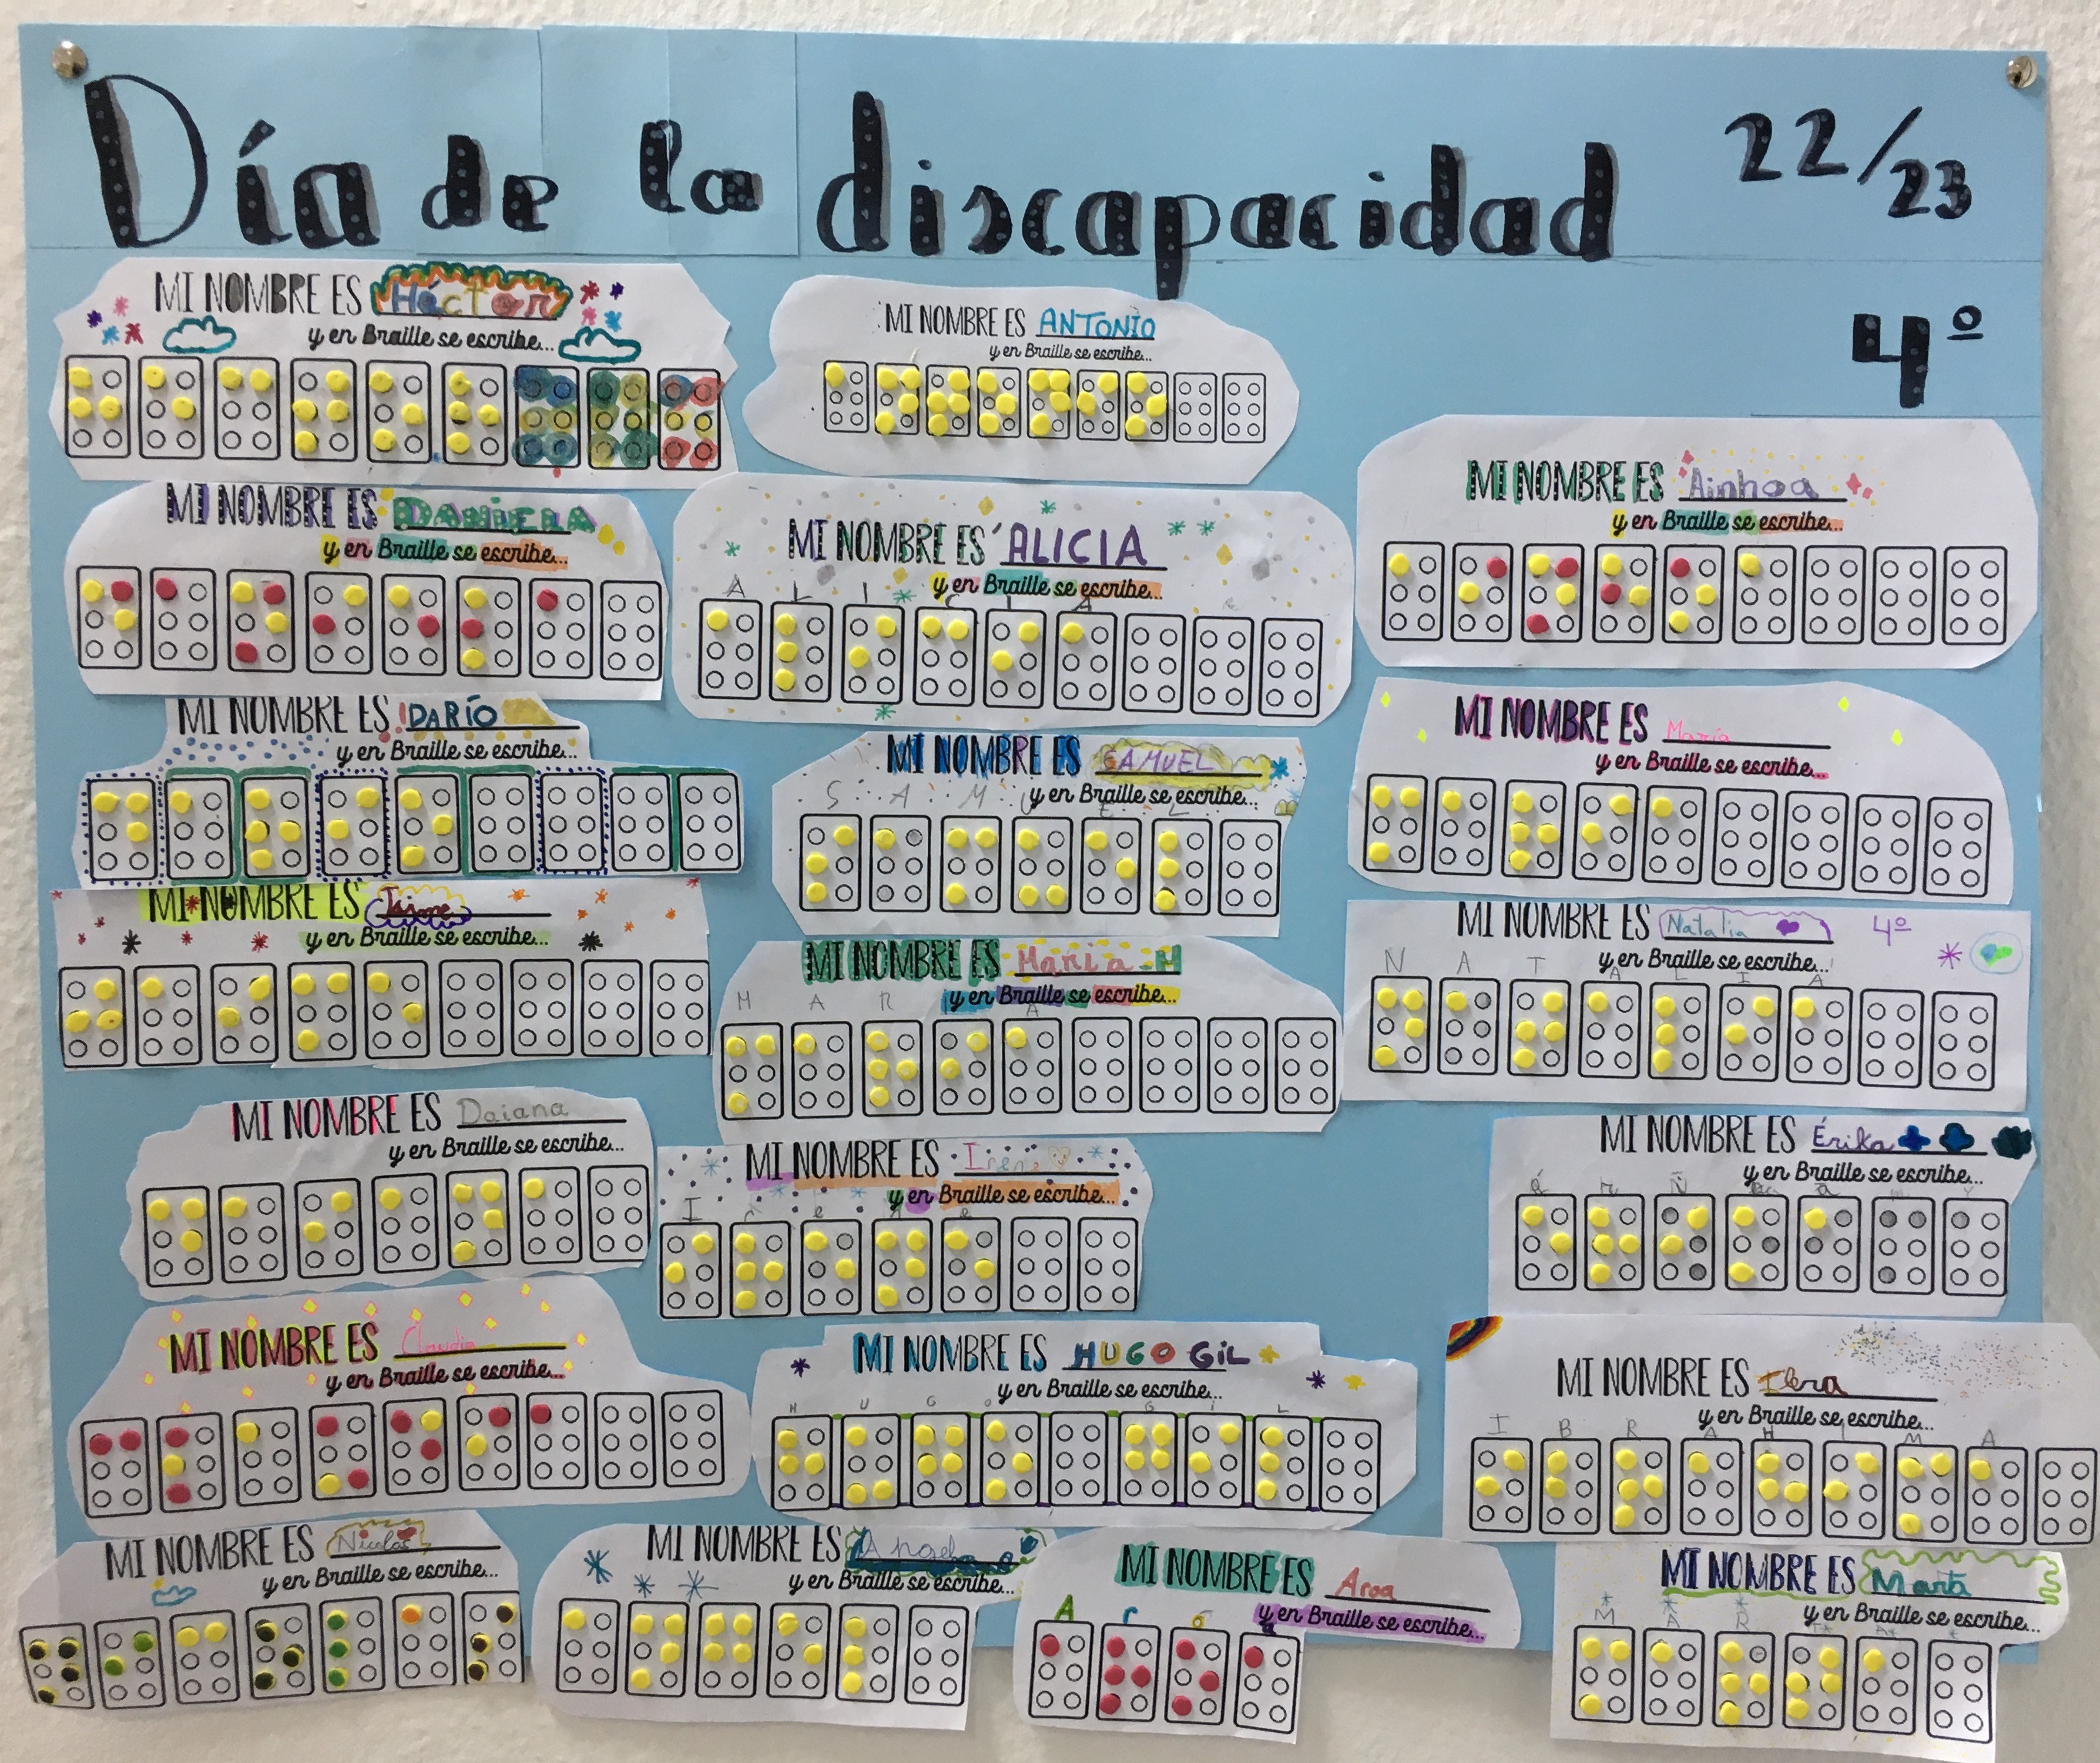 Día de la discapacidad 22/23
4º
MI NOMBRE ES Héctor
y en Braille se escribe...
MI NOMBRE ES ANTONIO
y en Braille se escribe...
MI NOMBRE ES Ainhoa
y en Braille se escribe...
MI NOMBRE ES DANIELA
y en Braille se escribe...
MI NOMBRE ES ALICIA
y en Braille se escribe...
A L I C I A
MI NOMBRE ES DARÍO
y en Braille se escribe...
MI NOMBRE ES SAMUEL
y en Braille se escribe...
S A M U E L
MI NOMBRE ES María
y en Braille se escribe...
MI NOMBRE ES Jaime
y en Braille se escribe...
MI NOMBRE ES María M
y en Braille se escribe...
M A R I A
MI NOMBRE ES Natalia 4º
y en Braille se escribe...
N A T A L I A
MI NOMBRE ES Daiana
y en Braille se escribe...
MI NOMBRE ES Irene
y en Braille se escribe...
I r e n e
MI NOMBRE ES Érika
y en Braille se escribe...
MI NOMBRE ES Claudia
y en Braille se escribe...
MI NOMBRE ES HUGO GIL
y en Braille se escribe...
H U G O G I L
MI NOMBRE ES
y en Braille se escribe...
I B R A H I M A
MI NOMBRE ES Nicolás
y en Braille se escribe...
MI NOMBRE ES Angel
y en Braille se escribe...
MI NOMBRE ES Aroa
y en Braille se escribe...
A r o a
MI NOMBRE ES Marta
y en Braille se escribe...
M A R